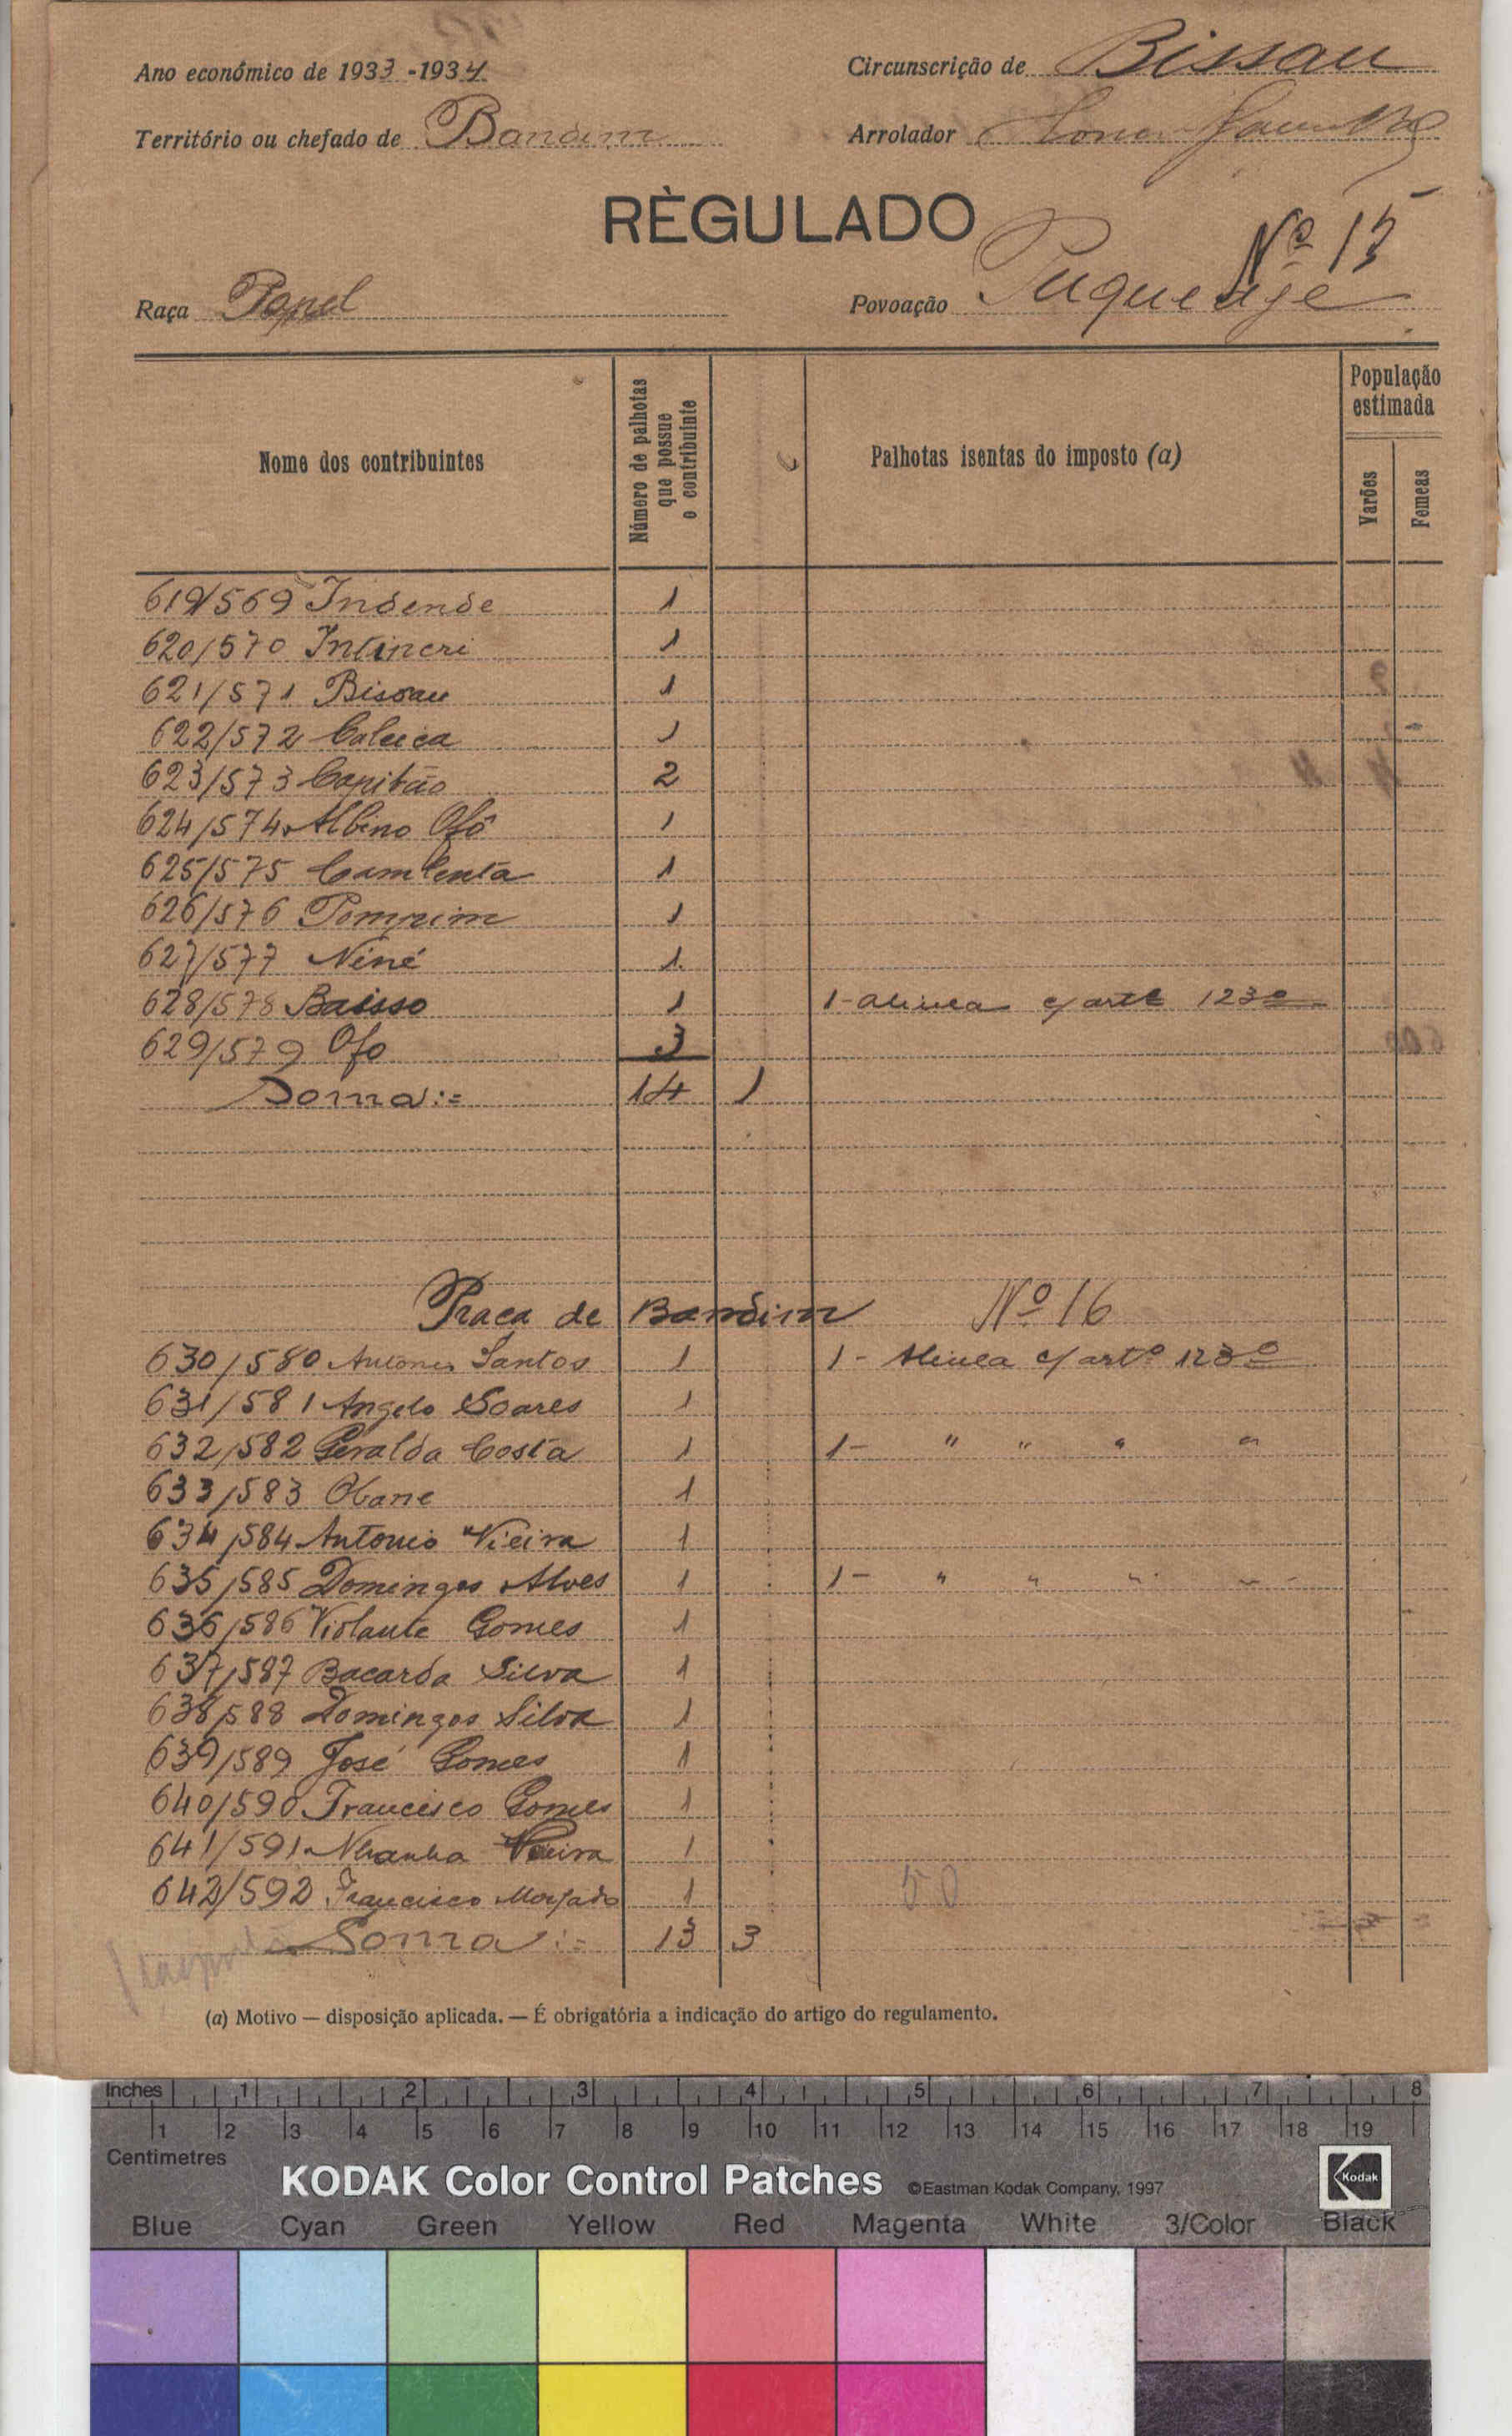 Ano económico de 1933-1934
Circunscrição de Bissau
Território ou chefado de Bandim
Arrolador
RÈGULADO
Nº 15
Raça Papel
Povoação
Nome dos contribuintes
Número de palhotas que possue o contribuinte
Palhotas isentas do imposto (a)
População estimada
Varões
Femeas
619/569 Indende 1
620/570 1
621/571 Bissau 1
622/572 1
623/573 Capitão 2
624/574 Albino Ofô 1
625/575 1
626/576 Pompim 1
627/577 Niné 1
628/578 Baisso 1 1-alinea c/ artº 123º
629/579 Ofo 3
Soma:= 14 1
Praça de Bandim Nº 16
630/580 Antonio Santos 1 1- Alinea c/ artº 123º
631/581 Angelo Soares 1
632/582 Geralda Costa 1 1- " " " "
633/583 Obane 1
634/584 Antonio Vieira 1
635/585 Domingos Alves 1 1- " " " "
636/586 Violante Gomes 1
637/587 Bacarda Silva 1
638/588 Domingos Silva 1
639/589 José Gomes 1
640/590 Francisco Gomes 1
641/591 Nhanha Vieira 1
642/592 Francisco Morgado 1
50
Soma:= 13 3
(a) Motivo — disposição aplicada. — É obrigatória a indicação do artigo do regulamento.
Inches 1 2 3 4 5 6 7 8
1 2 3 4 5 6 7 8 9 10 11 12 13 14 15 16 17 18 19
Centimetres
KODAK Color Control Patches ©Eastman Kodak Company, 1997 Kodak
Blue Cyan Green Yellow Red Magenta White 3/Color Black